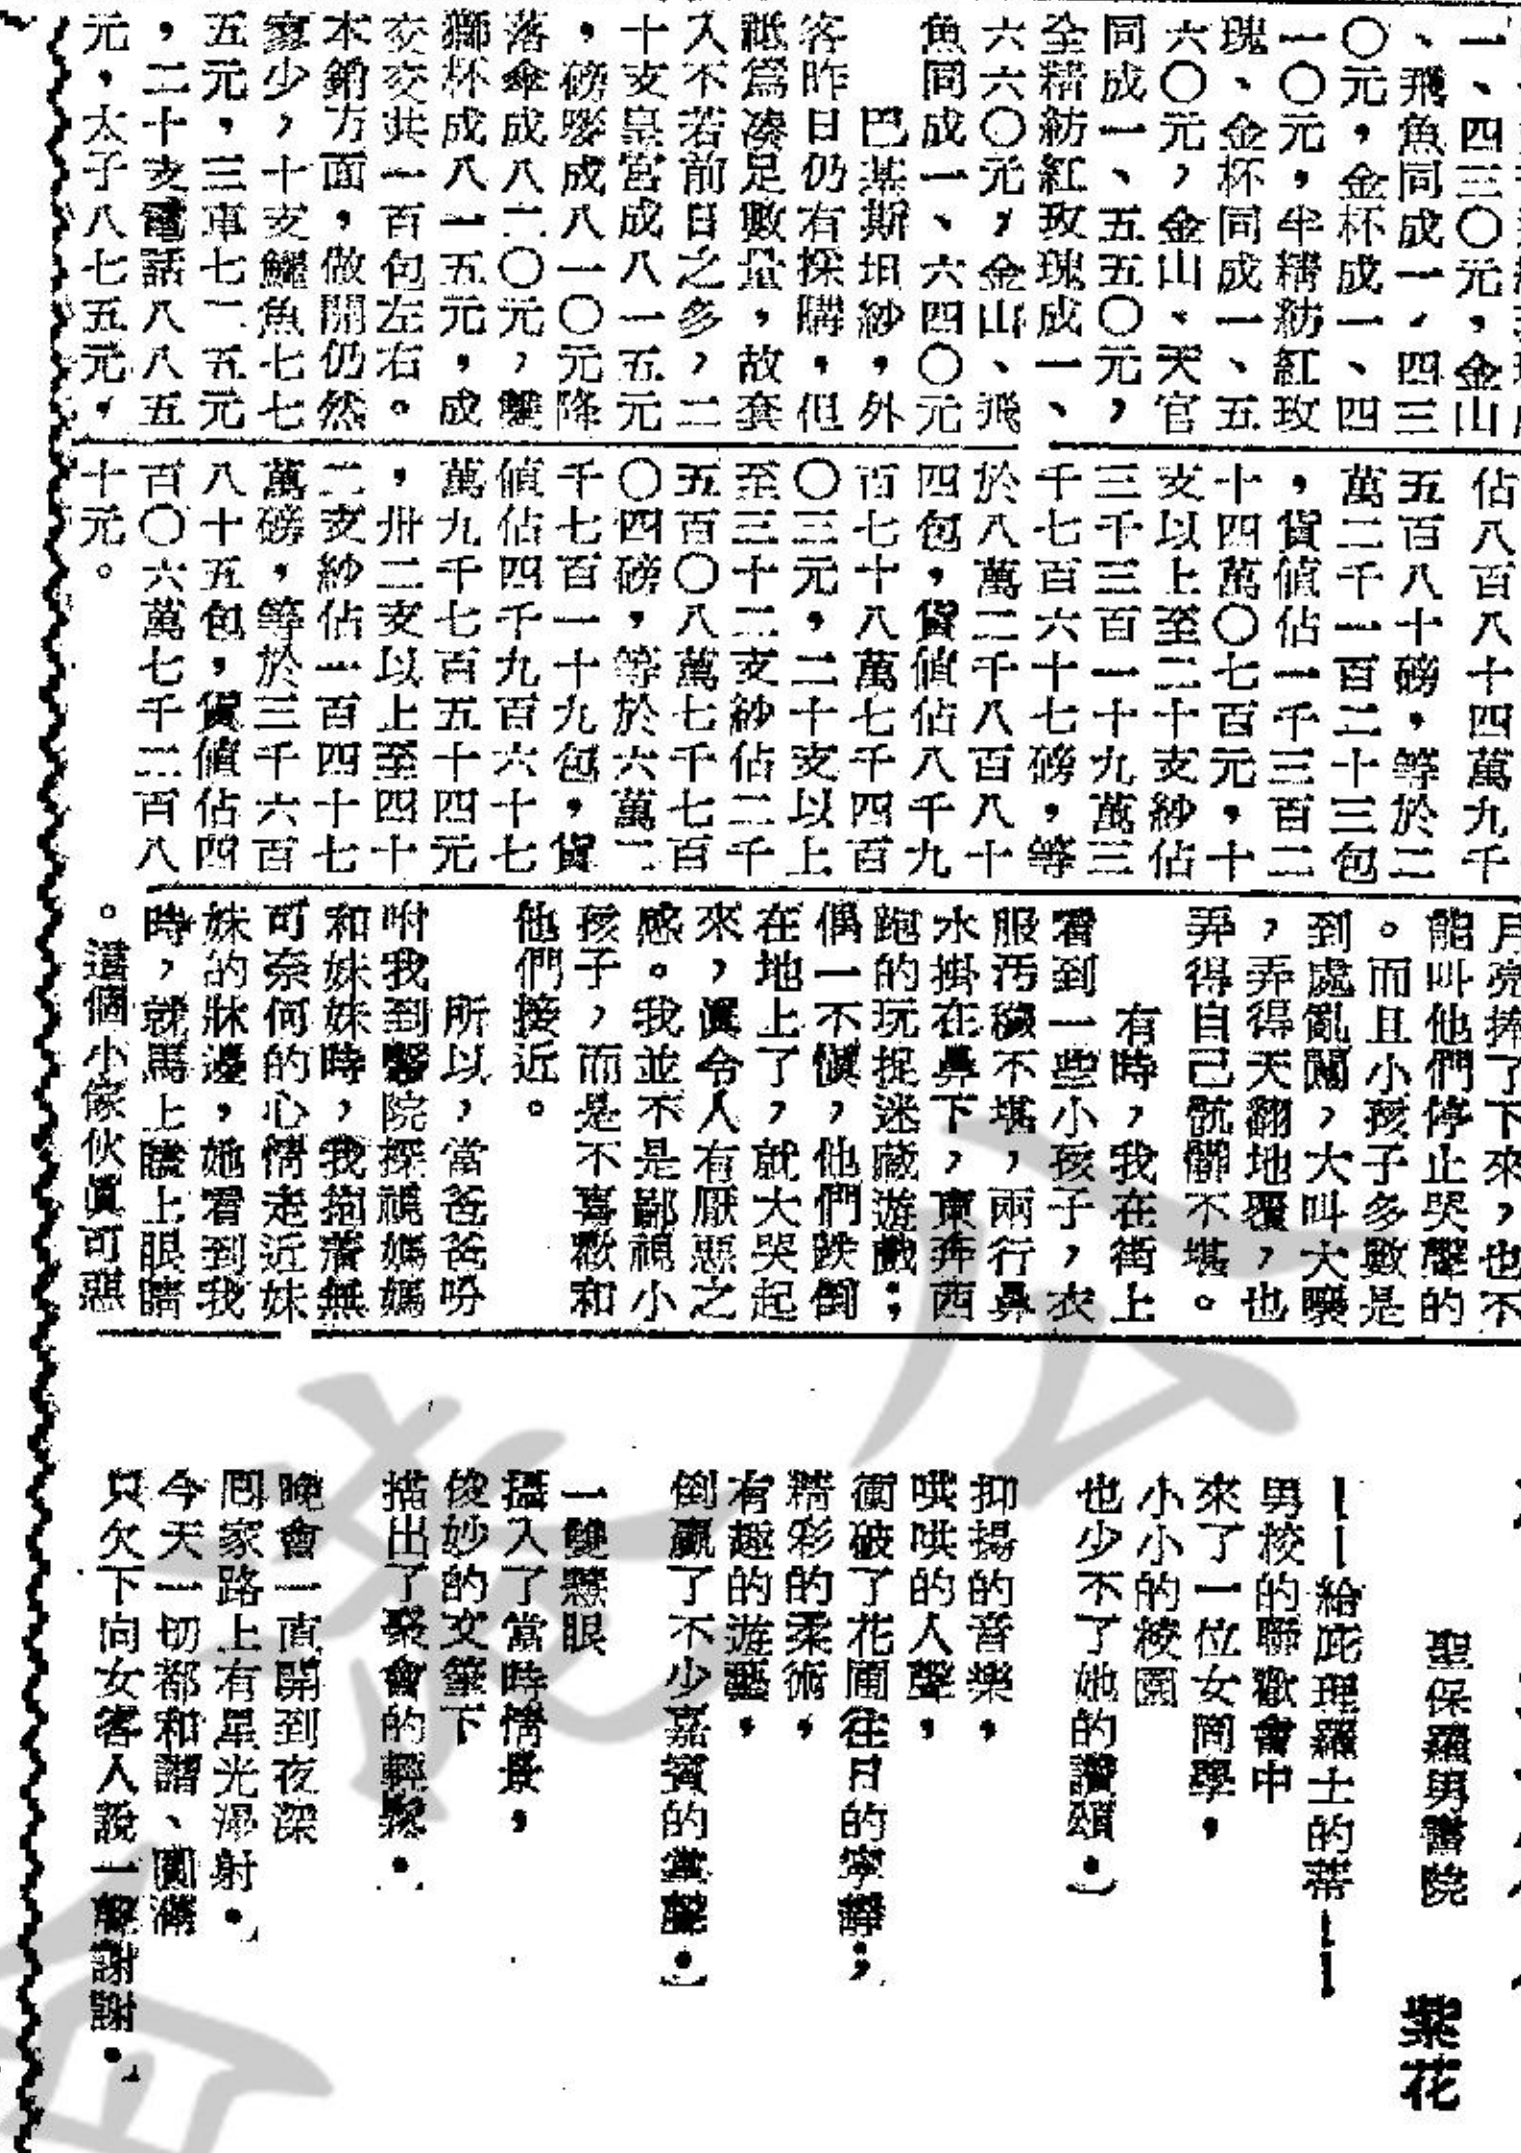 一、四三〇元，金山
、飛魚同成一、四三
〇元，金杯成一、四
一〇元，半精紡紅玫
瑰、金杯同成一、五
六〇元，金山、天官
同成一、五五〇元，
全精紡紅玫瑰成一、
六六〇元，金山、飛
魚同成一、六四〇元
巴基斯坦紗，外
客昨日仍有採購，但
祗爲湊足數量，故套
入不若前日之多，二
十支皇宮成八一五元
，磅嘜成八一〇元降
落傘成八二〇元，雙
獅杯成八一五元，成
交交共一百包左右。
本銷方面，做開仍然
寥少，十支鱷魚七七
五元，三車七二五元
，二十支電話八八五
元，太子八七五元，
佔八百八十四萬九千
五百八十磅，等於二
萬二千一百二十三包
，貨値佔一千三百二
十四萬〇七百元，十
支以上至二十支紗佔
三千三百一十九萬三
千七百六十七磅，等
於八萬二千八百八十
四包，貨値佔八千九
百七十八萬七千四百
〇三元，二十支以上
至三十二支紗佔二千
五百〇八萬七千七百
〇四磅，等於六萬二
千七百一十九包，貨
値佔四千九百六十七
萬九千七百五十四元
，卅二支以上至四十
二支紗佔一百四十七
萬磅，等於三千六百
八十五包，貨値佔四
百〇六萬七千二百八
十元。
月亮捧了下來，也不
能叫他們停止哭聲的
。而且小孩子多數是
到處亂闖，大叫大嚷
，弄得天翻地覆，也
弄得自己骯髒不堪。
有時，我在街上
看到一些小孩子，衣
服汚穢不堪，兩行鼻
水掛在鼻下，東奔西
跑的玩捉迷藏遊戲；
偶一不愼，他們跌倒
在地上了，就大哭起
來，眞令人有厭惡之
感。我並不是鄙視小
孩子，而是不喜歡和
他們接近。
所以，當爸爸吩
咐我到醫院探視媽媽
和妹妹時，我抱着無
可奈何的心情走近妹
妹的牀邊，她看到我
時，就馬上瞪上眼睛
。這個小傢伙眞可惡
聖保羅男醫院
紫花
——給庇理羅士的蒂——
男校的聯歡會中
來了一位女同學，
小小的校園
也少不了她的讚頌。
抑揚的音樂，
哄哄的人聲，
衝破了花圃往日的寧靜；
精彩的柔術，
有趣的遊藝，
倒贏了不少嘉賓的掌聲。
一雙慧眼
攝入了當時情景，
俊妙的文筆下
描出了聚會的輕鬆。
晚會一直開到夜深
囘家路上有星光漫射。
今天一切都和諧、圓滿
只欠下向女客人說一聲謝謝。